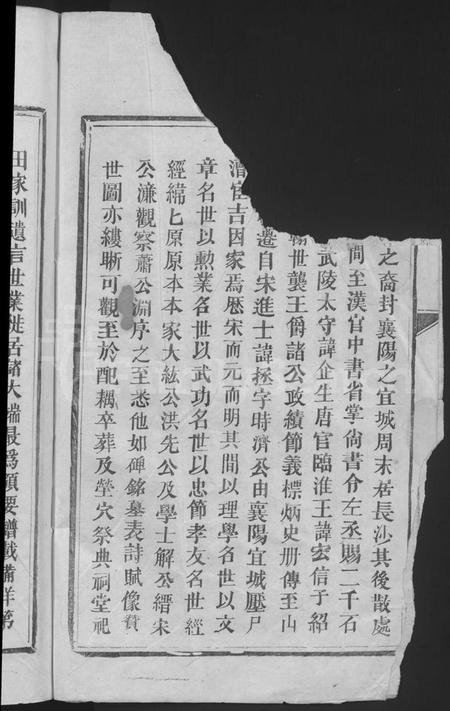 之裔封襄陽之宜城周末居長沙其後散處
間至漢官中書省掌尚書令左丞賜二千石
武陵太守諱企生唐官臨淮王諱宏信子紹
翰世襲王爵諸公政績節義標炳史册傳至山
遷自宋進士諱拯字時濟公由襄陽宜城壓尸
漕官吉因家焉歷宋而元而明其間以理學名世以文
章名世以勲業名世以武功名世以忠節孝友名世經
經緯匕原原本本家大紘公洪先公及學士解公縉宋
公濂觀察蕭公淵序之至悉他如碑銘墓表詩賦像贊
世圖亦縷晰可觀至於配耦卒葬及塋穴祭典祠堂祀
田家訓遺言世業徙居諸大端最為須要譜載備詳第